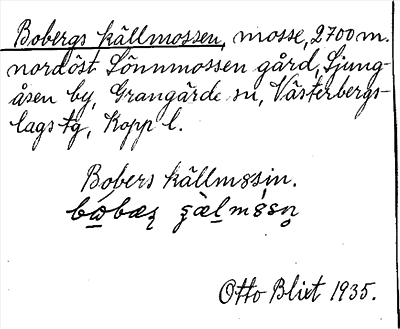 Bobergs källmossen, mosse, 2700 m.
nordöst Lönnmossen gård, Ljung-
åsen by, Grangärde sn, Västerbergs-
lags tg, Kopp l.
Bobers källm8sin.
Otto Blixt 1935.